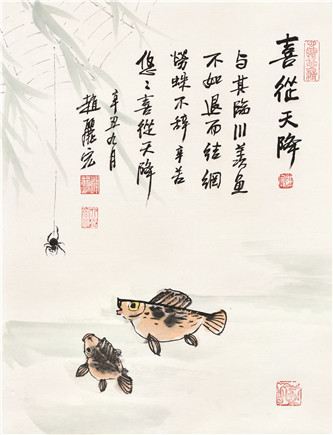 喜從天降
与其臨川羡魚
不如退而結網
勞蛛不辞辛苦
喜從天降
辛丑九月
趙麗宏